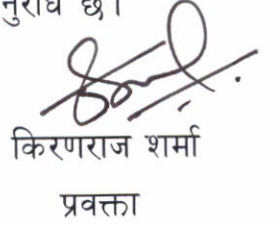 नुरोध छ।
किरणराज शर्मा
प्रवक्ता